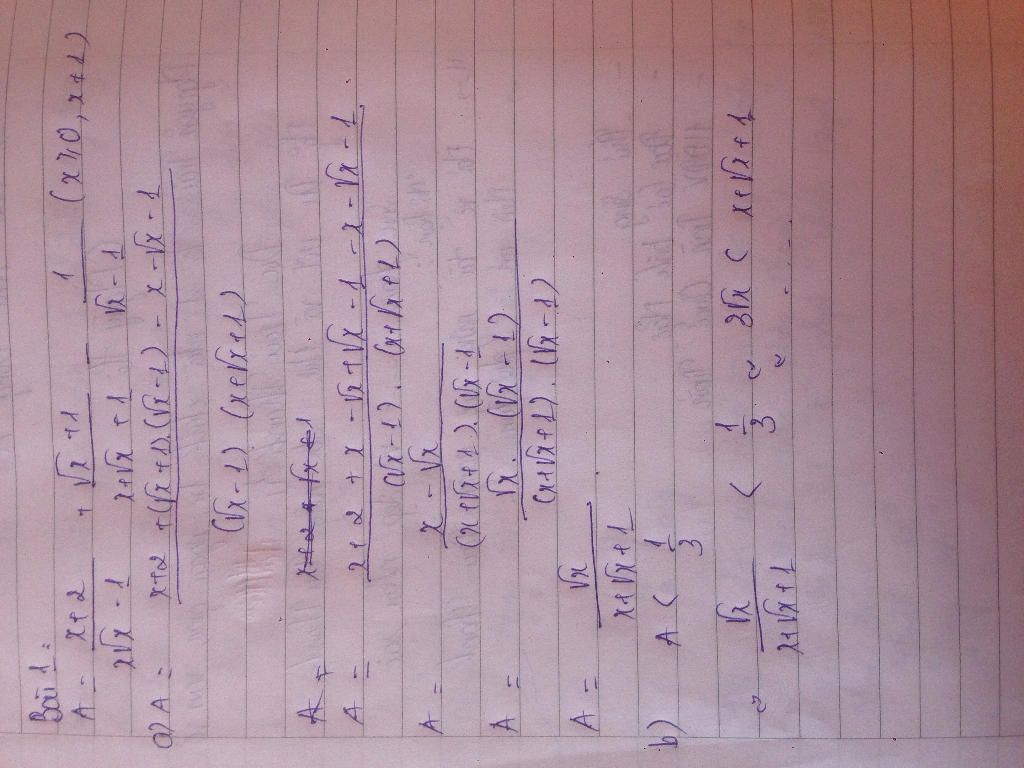 Bài 1:
A = x+2 / x√x - 1 + √x + 1 / x+√x + 1 - 1 / √x - 1 (x≥0, x≠1)
a) A = x+2 + (√x+1).(√x-1) - x-√x-1 / (√x-1) (x+√x+1)
A = x+2+√x+1
A = x+2 + x - √x+√x - 1 - x - √x - 1 / (√x-1). (x+√x+1)
A = x - √x / (x+√x+1).(√x-1
A = √x. (√x - 1) / (x+√x+1). (√x-1)
A = √x / x+√x+1
b) A < 1/3
~ √x / x+√x+1 < 1/3 ~ 3√x < x+√x+1
~ . . - .